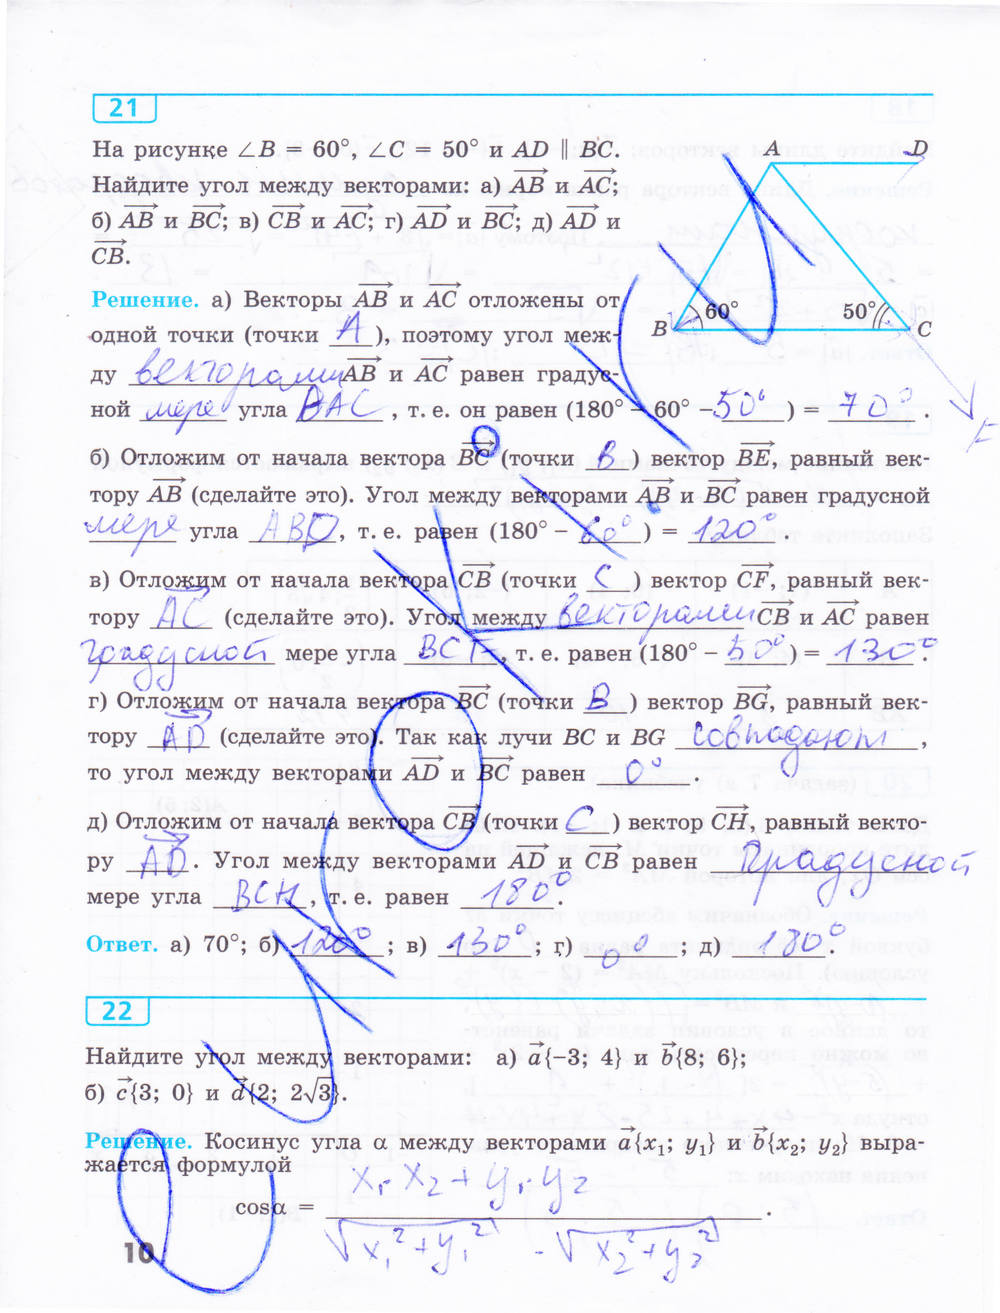 21
На рисунке ∠B = 60°, ∠C = 50° и AD ∥ BC.
Найдите угол между векторами: а) AB и AC;
б) AB и BC; в) CB и AC; г) AD и BC; д) AD и
CB.
A D
60° 50°
B C
F
Решение. а) Векторы AB и AC отложены от
одной точки (точки A ), поэтому угол меж-
ду векторами AB и AC равен градус-
ной мере угла BAC , т. е. он равен (180° − 60° − 50° ) = 70° .
б) Отложим от начала вектора BC (точки B ) вектор BE, равный век-
тору AB (сделайте это). Угол между векторами AB и BC равен градусной
мере угла , т. е. равен (180° − 60° ) = 120° .
в) Отложим от начала вектора CB (точки C ) вектор CF, равный век-
тору AC (сделайте это). Угол между векторами CB и AC равен
градусной мере угла BCF , т. е. равен (180° − 50° ) = 130° .
г) Отложим от начала вектора BC (точки B ) вектор BG, равный век-
тору AD (сделайте это). Так как лучи BC и BG совпадают ,
то угол между векторами AD и BC равен 0° .
д) Отложим от начала вектора CB (точки C ) вектор CH, равный векто-
ру AD . Угол между векторами AD и CB равен градусной
мере угла BCH , т. е. равен 180° .
Ответ. а) 70°; б) 120° ; в) 130° ; г) 0° ; д) 180° .
22
Найдите угол между векторами: а) a{−3; 4} и b{8; 6};
б) c{3; 0} и d{2; 2√3}.
Решение. Косинус угла α между векторами a{x₁; y₁} и b{x₂; y₂} выра-
жается формулой
x₁·x₂+y₁·y₂
cos α = .
√x₁²+y₁² · √x₂²+y₂²
10